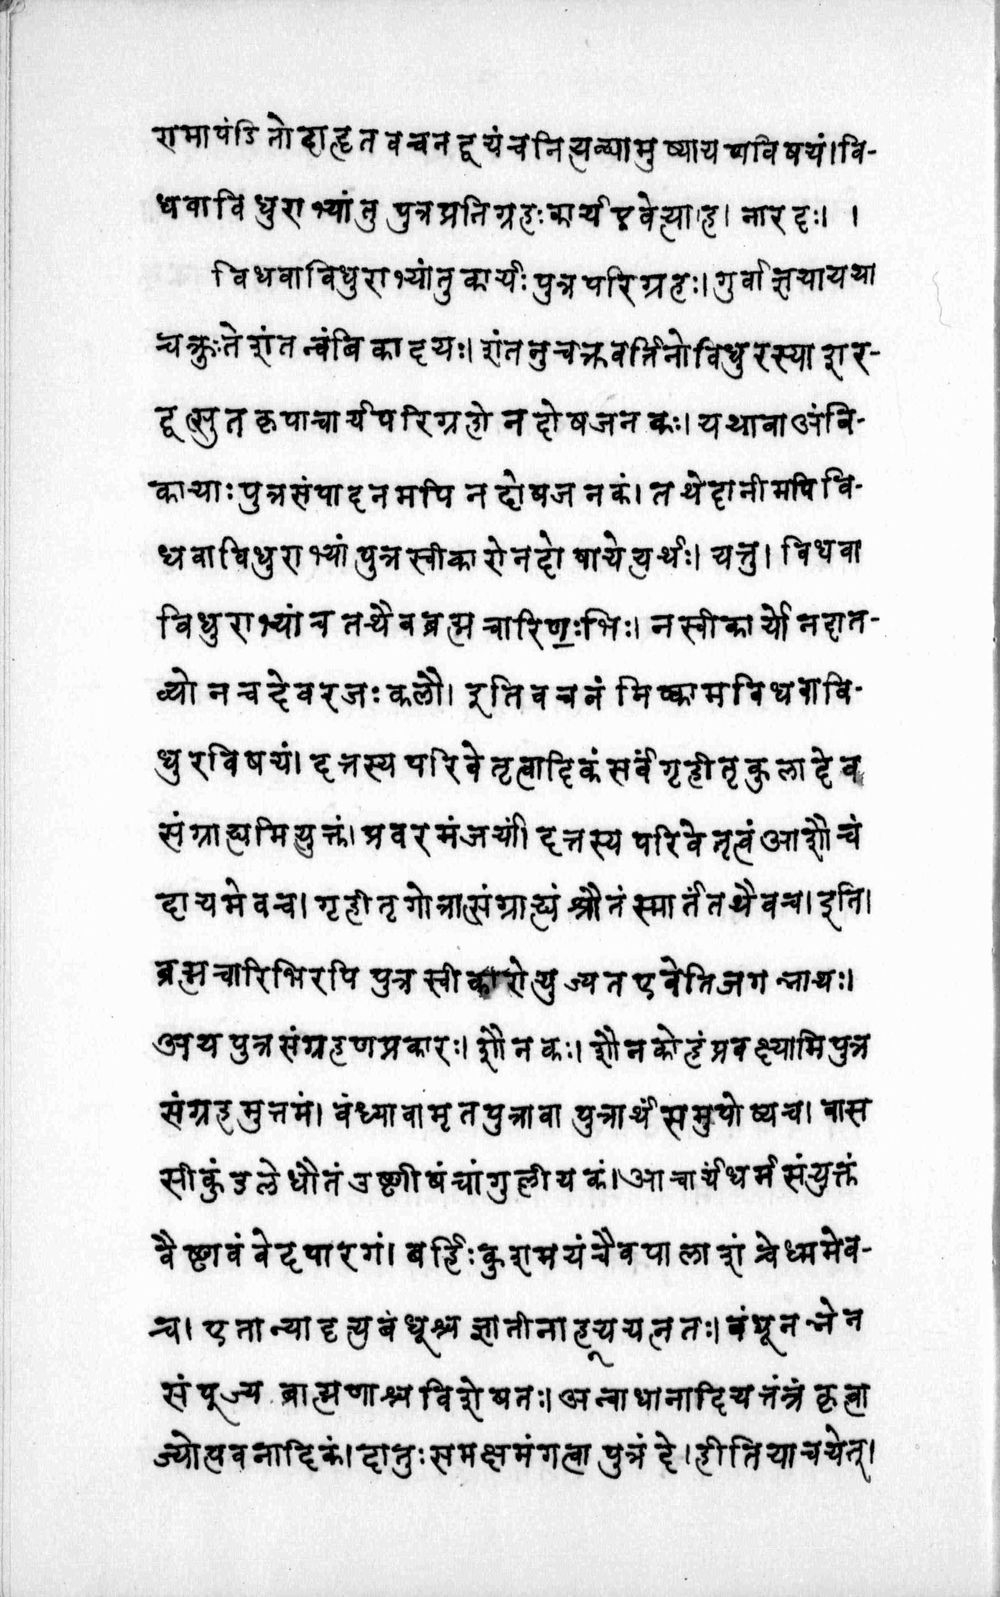 रामापंडितोदाहृतवचनद्वयंचनित्यव्द्यामुष्यायणविषयं। वि-
धवाविधुराभ्यांतु पुत्रप्रतिग्रहःकार्यएवेत्याह। नारदः। ।
विधवाविधुराभ्यांतुकार्यःपुत्रपरिग्रहः। गुर्वाज्ञयायथा
चक्रुःतेशंतन्वंबिकादयः। शंतनुचक्रवर्तिनोविधुरस्याशर-
द्वत्सुतकृपाचार्यपरिग्रहो नदोषजनकः। यथावाअंबि-
कायाःपुत्रसंपादनमपि नदोषजनकं। तथेदानीमपिवि-
धवाविधुराभ्यां पुत्रस्वीकारोनदोषायेत्यर्थः। यत्तु। विधवा
विधुराभ्यांचतथैवब्रह्मचारिणःभिः। नस्वीकार्योनदात-
व्योनचदेवरजःकलौ। इतिवचनं निष्कामविधवावि-
धुरविषयं। दत्तस्यपरिवेतृत्वादिकंसर्वंगृहीतृकुलादेव
संग्राह्यमित्युक्तं। प्रवरमंजर्यां। दत्तस्यपरिवेतृत्वंआशौचं
दायमेवच। गृहीतृगोत्रात्संग्राह्यं श्रौतंस्मार्तंतथैवच। इति।
ब्रह्मचारिभिरपि पुत्रस्वीकारोयुज्यतएवेतिजगन्नाथः।
अथपुत्रसंग्रहणप्रकारः। शौनकः। शौनकोहंप्रवक्ष्यामिपुत्र
संग्रहमुत्तमं। वंध्यावामृतपुत्रावा पुत्रार्थंसमुपोष्यच। वास
सीकुंडलेधौतंउष्णीषंचांगुलीयकं। आचार्यंधर्मसंयुक्तं
वैष्णवंवेदपारगं। बर्हिःकुशमयंचैवपालाशंचेध्ममेव-
च। एतान्यादृत्यबंधूश्च ज्ञातीनाहूययत्नतः। बंधूनन्नेन
संपूज्य ब्राह्मणाश्चविशेषतः। अन्वाधानादियत्तंत्रंकृत्वा
ज्योत्पवनादिकं। दातुःसमक्षमंगत्वा पुत्रं दे।हीतियाचयेत्।